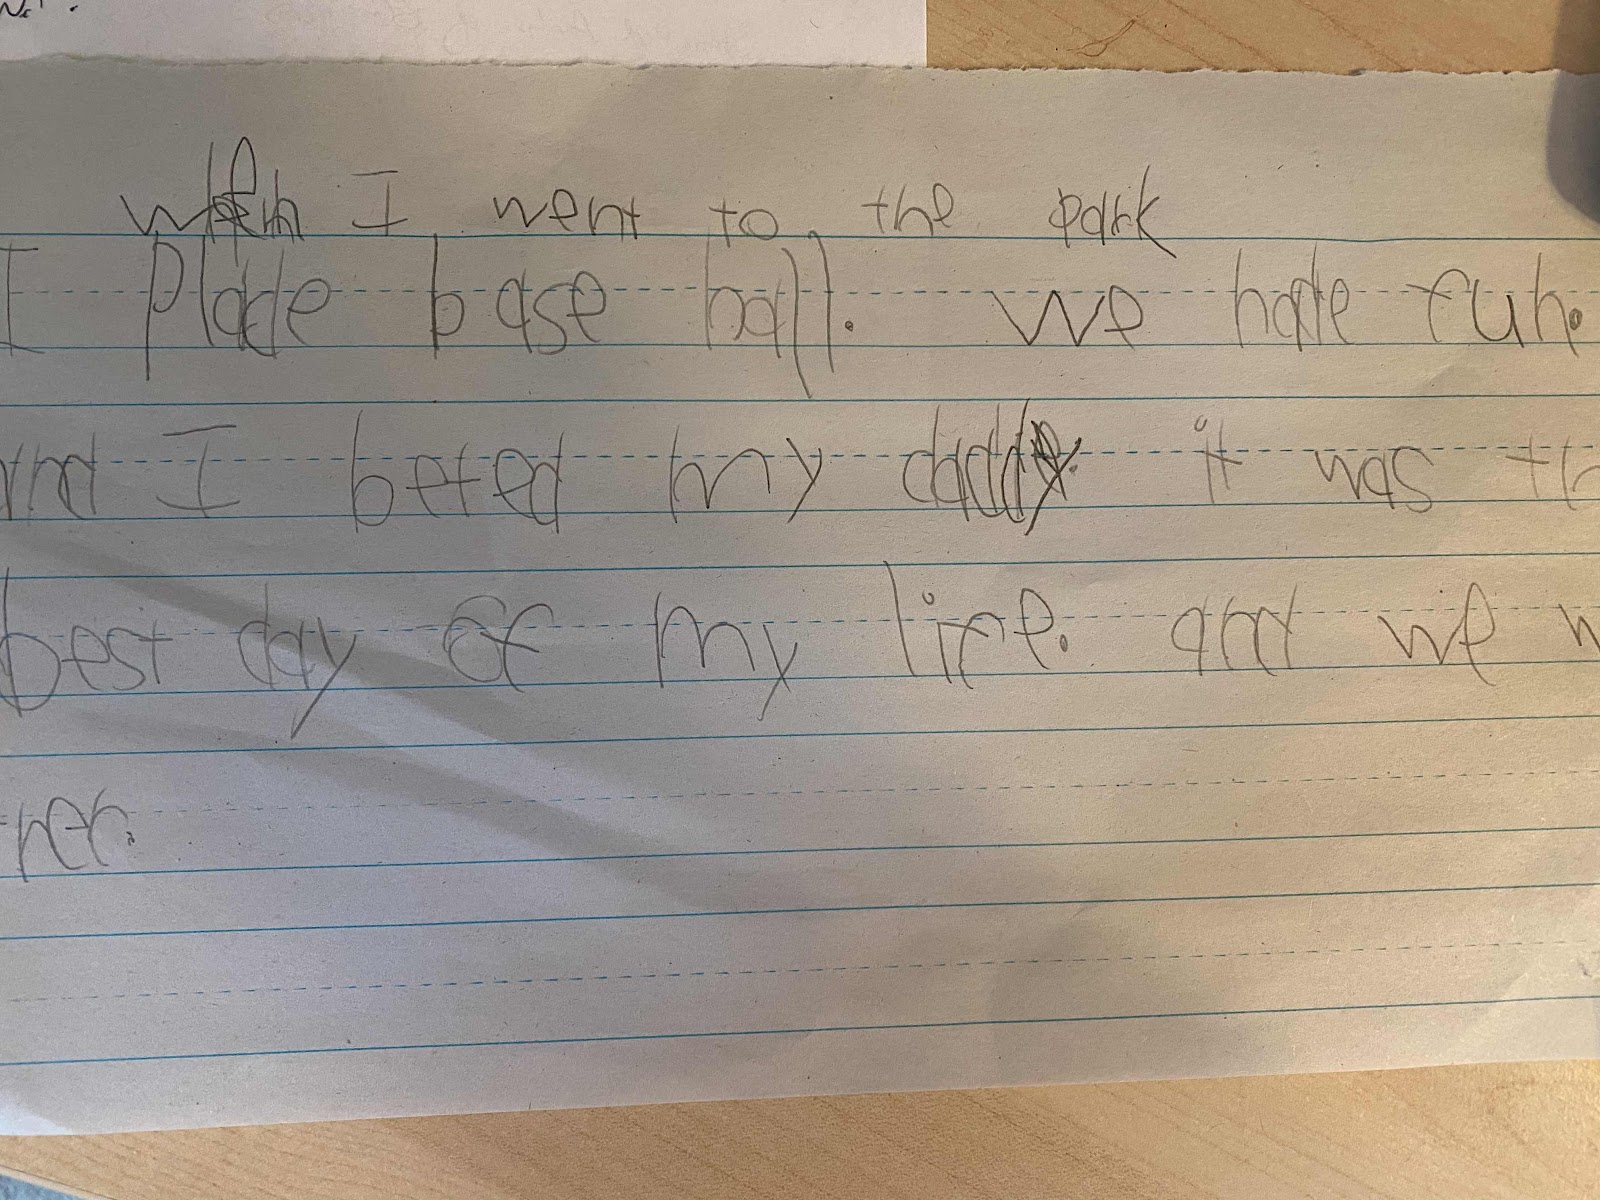 when I went to the park
I Plade base ball. We hade fun.
and I beted my daddy. it was
best day of my life. and we